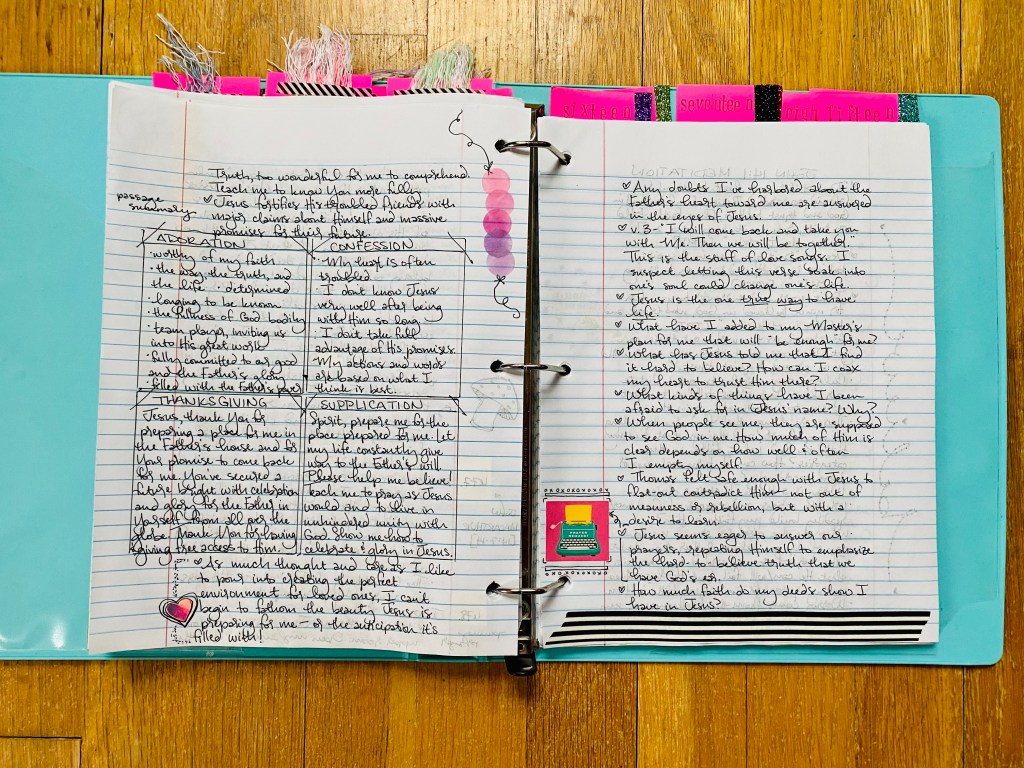 sixteen
seventeen
fifteen
Truth, too wonderful for me to comprehend.
Teach me to know You more fully.
passage
summary
Jesus fortifies His troubled friends with
major claims about Himself and massive
promises for their future.
ADORATION
· worthy of my faith
· the way, the truth, and
the life · determined
· longing to be known
· the fullness of God bodily
· team player, inviting us
into His great work
· fully committed to our good
and the Father's glory
· filled with the Father's power
CONFESSION
· My heart is often
troubled.
· I don't know Jesus
very well after being
with Him so long.
· I don't take full
advantage of His promises.
· My actions and words
are based on what I
think is best.
THANKSGIVING
Jesus, thank You for
preparing a place for me in
the Father's house and for
Your promise to come back
for me. You've secured a
future bright with celebration
and glory for the Father in
Yourself from all over the
globe. Thank You for having
giving free access to Him.
SUPPLICATION
Spirit, prepare me for the
place prepared for me. Let
my life constantly give
way to the Father's will.
Please help me believe!
Teach me to pray as Jesus
would and to live in
unhindered unity with
God. Show me how to
celebrate & glory in Jesus.
♡ As much thought and care as I like
to pour into creating the perfect
environment for loved ones, I can't
begin to fathom the beauty Jesus is
preparing for me — or the anticipation it's
filled with!
JOHN 14:1 MEDITATION
♡ Any doubts I've harbored about the
Father's heart toward me are answered
in the eyes of Jesus.
♡ v. 3 - "I will come back and take you
with Me. Then we will be together."
This is the stuff of love songs. I
suspect letting this verse soak into
one's soul could change one's life.
♡ Jesus is the one true way to have
life.
♡ What have I added to my Master's
plan for me that will "be enough" for me?
♡ What has Jesus told me that I find
it hard to believe? How can I coax
my heart to trust Him there?
♡ What kinds of things have I been
afraid to ask for in Jesus' name? Why?
♡ When people see me, they are supposed
to see God in me. How much of Him is
clear depends on how well & often
I empty myself.
♡ Thomas felt safe enough with Jesus to
flat-out contradict Him — not out of
meanness or rebellion, but with a
desire to learn.
♡ Jesus seems eager to answer our
prayers, repeating Himself to emphasize
the hard-to-believe truth that we
have God's ear.
♡ How much faith do my deeds show I
have in Jesus?
OXOXOXO
PRAYER
REQUEST